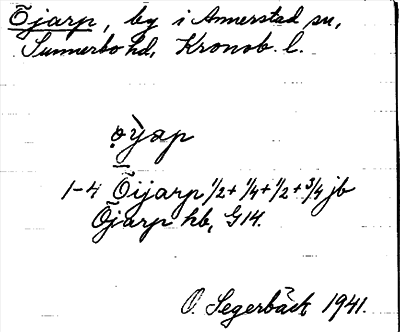 Öjarp, by i Annerstad sn,
Sunnerbo hd, Kronob. l.
o̤ỳap
1-4 Öijarp 1/2+1/4+1/2+3/4 jb
Öjarp hb, G14.
O. Segerbäck 1941.